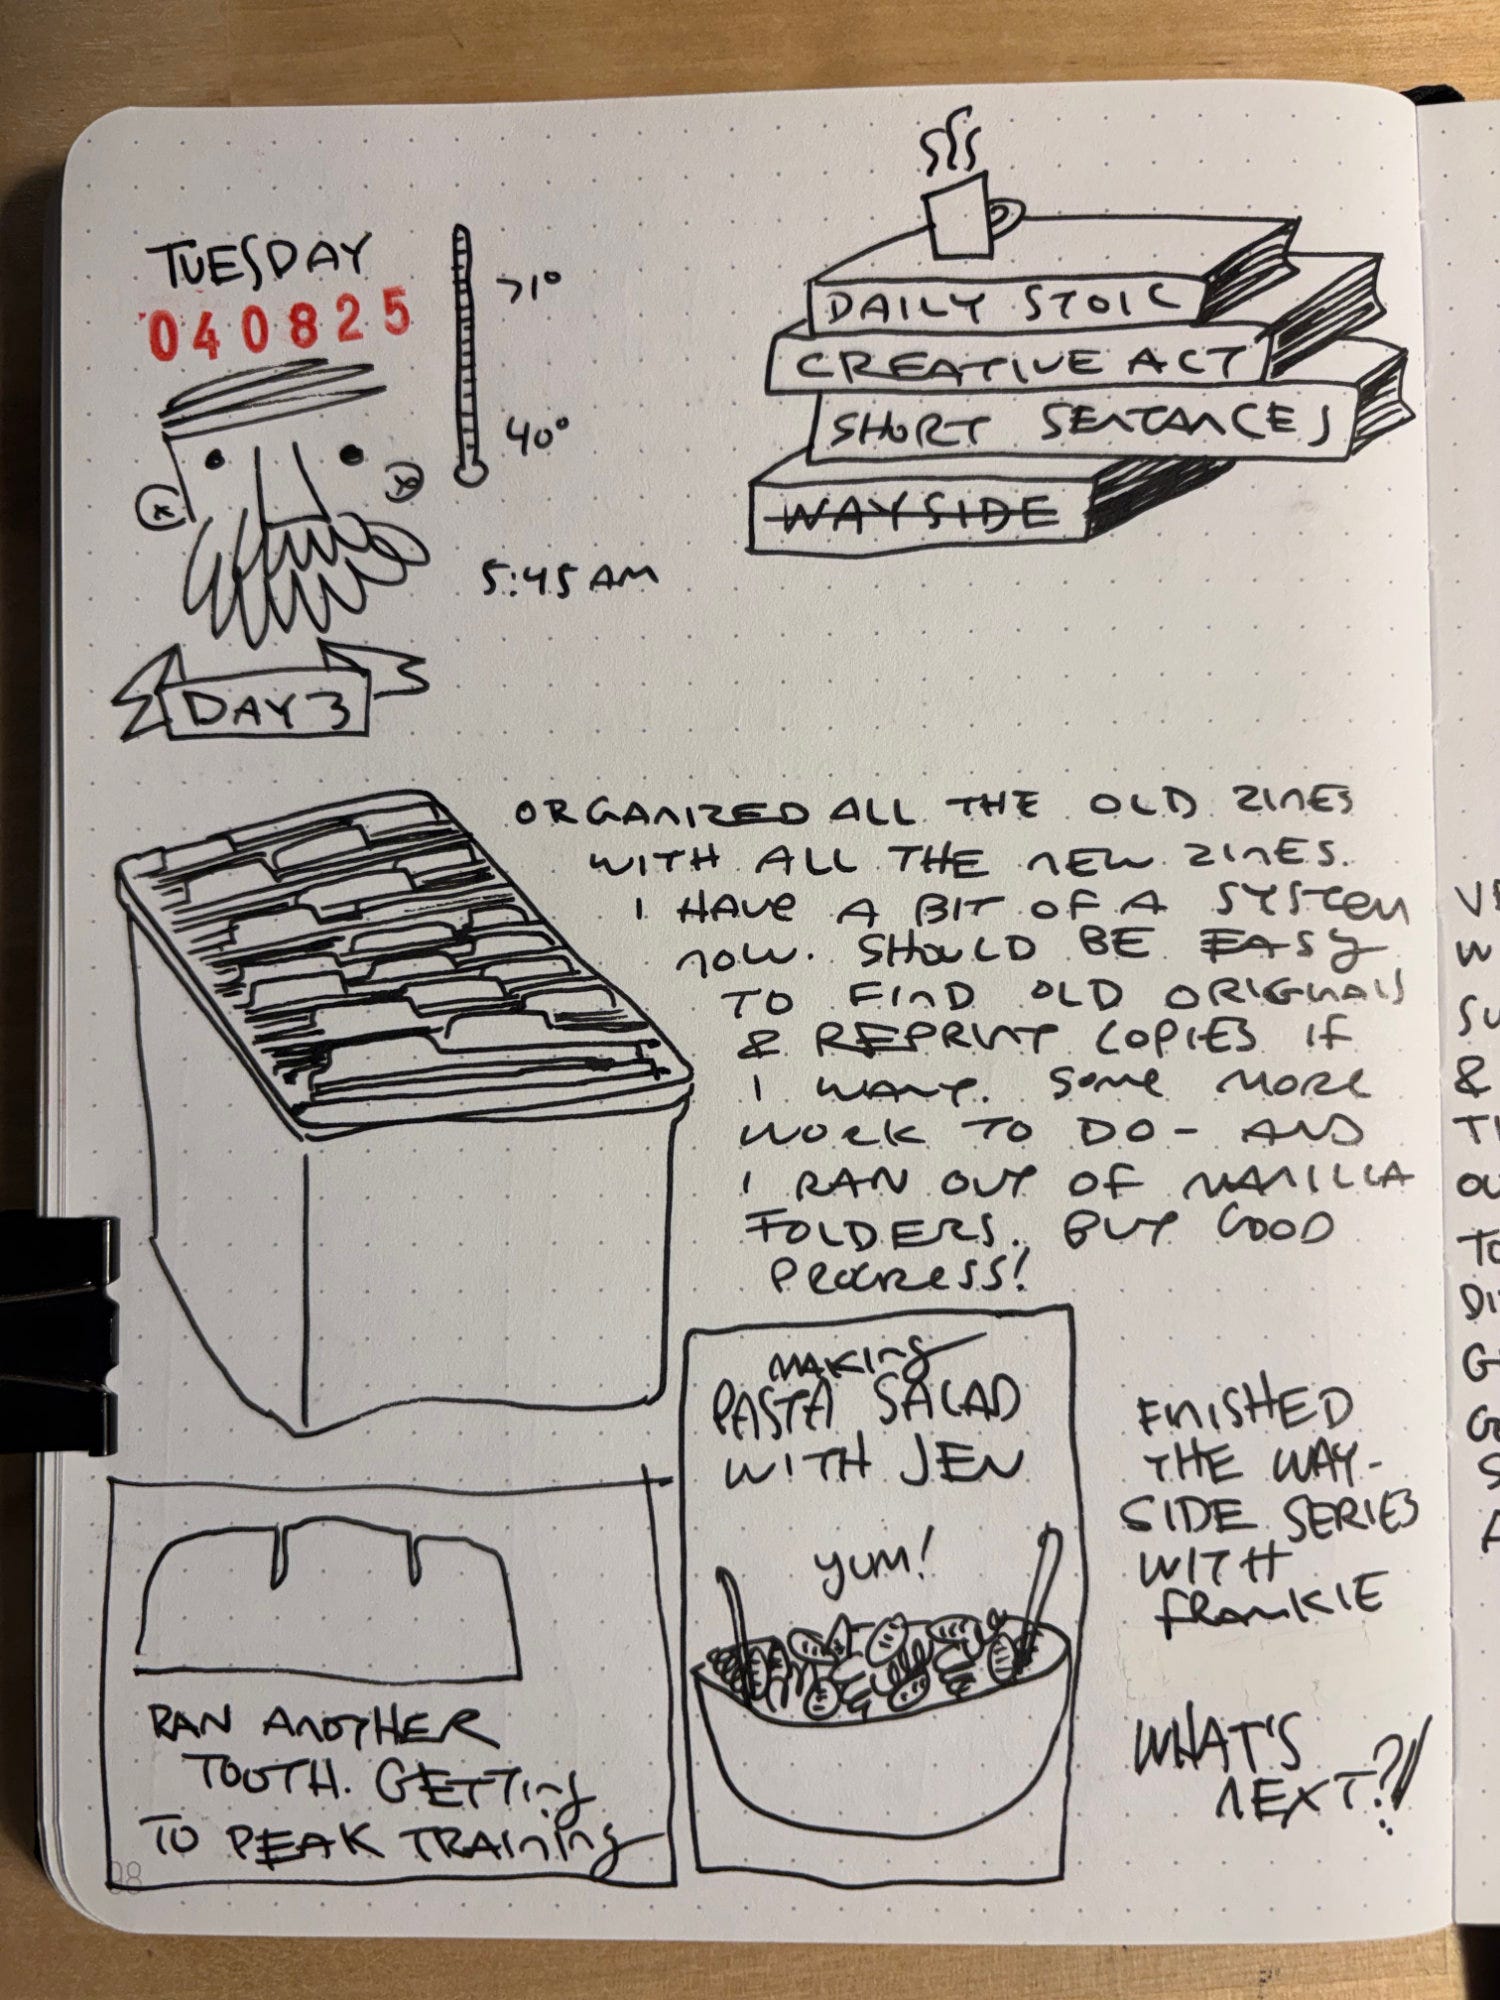 TUESDAY
040825
71°
40°
5:45 AM
DAY 3
DAILY STOIC
CREATIVE ACT
SHORT SENTANCES
WAYSIDE
ORGANIZED ALL THE OLD ZINES
WITH ALL THE NEW ZINES.
I HAVE A BIT OF A SYSTEM
NOW. SHOULD BE EASY
TO FIND OLD ORIGINALS
& REPRINT COPIES IF
I WANT. SOME MORE
WORK TO DO - AND
I RAN OUT OF MANILLA
FOLDERS. BUT GOOD
PROGRESS!
MAKING
PASTA SALAD
WITH JEN
YUM!
FINISHED
THE WAY-
SIDE SERIES
WITH
FRANKIE
WHAT'S
NEXT?!
RAN ANOTHER
TOOTH. GETTING
TO PEAK TRAINING